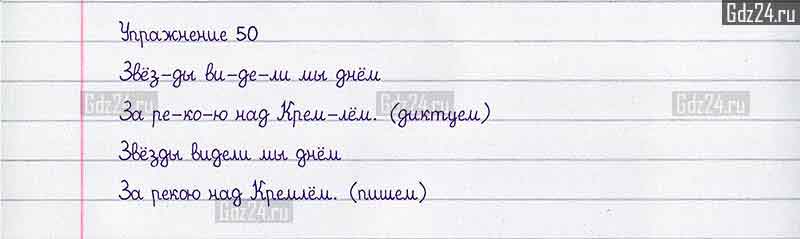 Gdz24.ru
Упражнение 50
Звёз-ды ви-де-ли мы днём
Gdz24.ru Gdz24.ru Gdz24.ru
За ре-ко-ю над Крем-лём. (диктуем)
Звёзды видели мы днём
За рекою над Кремлём. (пишем)
Gdz24.ru Gdz24.ru